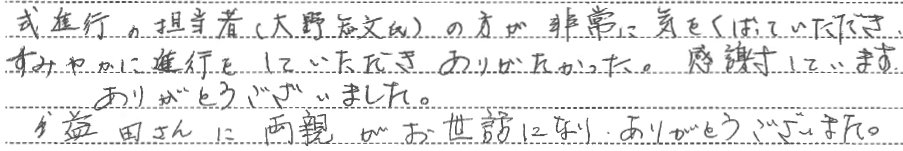 式進行の担当者(大野知文氏)の方が非常に気をくばっていただき、
すみやかに進行をしていただきありがたかった。感謝しています
ありがとうございました。
益田さんに両親がお世話になり、ありがとうございました。